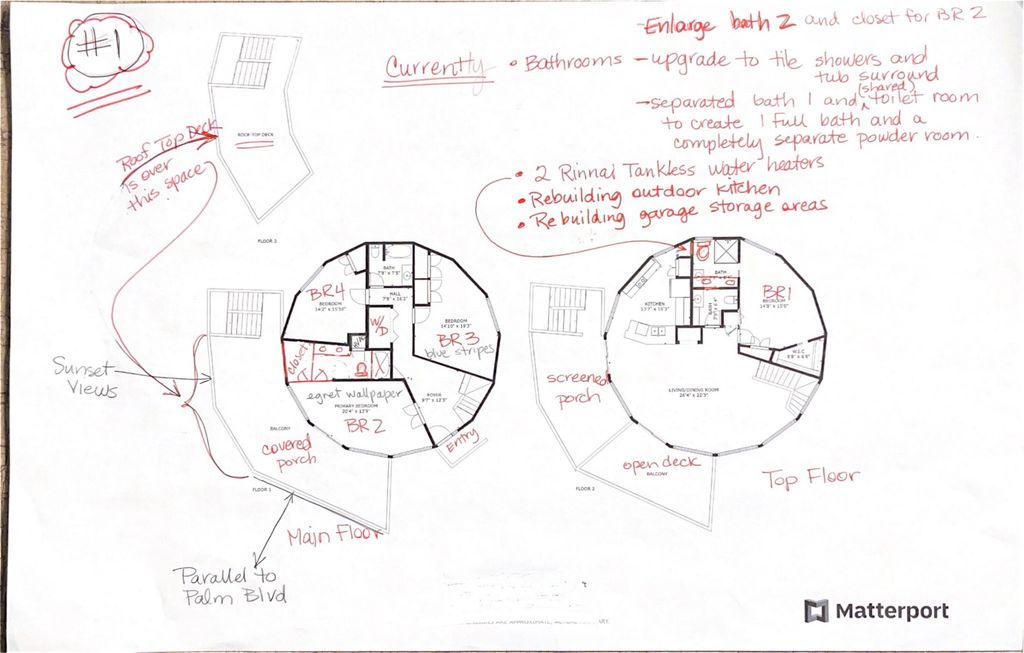 #1
Enlarge bath 2 and closet for BR 2
Currently
• Bathrooms - upgrade to tile showers and
tub surround
(shared)
→ separated bath 1 and ^ toilet room
to create 1 full bath and a
completely separate powder room.
• 2 Rinnai Tankless water heaters
• Rebuilding outdoor kitchen
• Rebuilding garage storage areas
Roof Top Deck
is over
this space
ROOF TOP DECK
FLOOR 3
Sunset
Views
BALCONY
covered
porch
FLOOR 1
Main Floor
Parallel to
Palm Blvd
BR4
BEDROOM
BATH
7'8" x 7'5"
HALL
W/D
BEDROOM
14'10" x 19'3"
BR 3
blue stripes
closet
egret wallpaper
PRIMARY BEDROOM
20'4" x 13'9"
BR 2
FOYER
Entry
KITCHEN
BATH
BATH
BR1
BEDROOM
W.I.C.
LIVING/DINING ROOM
26'4" x 22'3"
screened
porch
open deck
BALCONY
FLOOR 2
Top Floor
Matterport